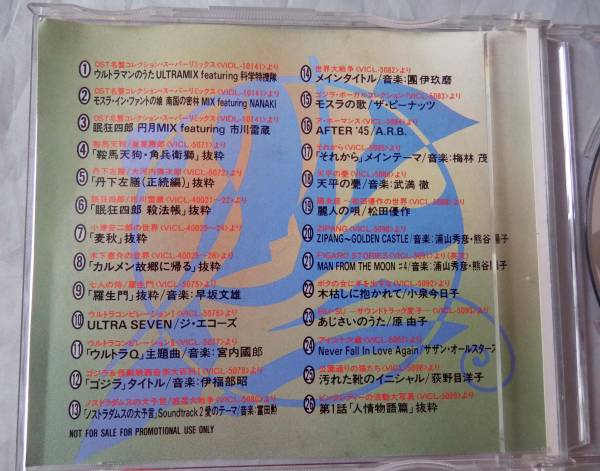 ① OST名盤コレクション・スーパーリミックス<VIDL-10141>より
ウルトラマンのうた ULTRAMIX featuring 科学特捜隊
② OST名盤コレクション・スーパーリミックス<VIDL-10141>より
モスラ・イン・ファントの娘 南国の密林 MIX featuring NANAKI
③ OST名盤コレクション・スーパーリミックス<VIDL-10141>より
眠狂四郎 円月MIX featuring 市川雷蔵
④ 鞍馬天狗/嵐寛寿郎<VICL-5071>より
「鞍馬天狗・角兵衛獅」抜粋
⑤ 丹下左膳/大河内傳次郎<VICL-5072>より
「丹下左膳(正続編)」抜粋
⑥ 眠狂四郎/市川雷蔵<VICL-40021〜22>より
「眠狂四郎 殺法帳」抜粋
⑦ 小津安二郎の世界<VICL-40023〜24>より
「麦秋」抜粋
⑧ 木下恵介の世界<VICL-40025〜26>より
「カルメン故郷に帰る」抜粋
⑨ 七人の侍/羅生門<VICL-5075>より
「羅生門」抜粋/音楽:早坂文雄
⑩ ウルトラコンピレーションⅠ<VICL-5076>より
ULTRA SEVEN/ジ・エコーズ
⑪ ウルトラコンピレーションⅡ<VICL-5077>より
「ウルトラQ」主題曲/音楽:宮内國郎
⑫ ゴジラ&怪獣映画音楽大百科Ⅰ<VICL-5078>より
「ゴジラ」タイトル/音楽:伊福部昭
⑬ ノストラダムスの大予言/惑星大戦争<VICL-5080>より
「ノストラダムスの大予言」Soundtrack 2 愛のテーマ/音楽:冨田勲
NOT FOR SALE FOR PROMOTIONAL USE ONLY
⑭ 世界大戦争<VICL-5082>より
メインタイトル/音楽:團 伊玖磨
⑮ ゴジラ・ボーカルコレクション<VICL-5083>より
モスラの歌/ザ・ピーナッツ
⑯ ア・ホーマンス<VICL-5084>より
AFTER '45/A.R.B.
⑰ それから<VICL-5085>より
「それから」メインテーマ/音楽:梅林 茂
⑱ 天平の甍<VICL-5086>より
天平の甍/音楽:武満 徹
⑲ 陽炎座〜松田優作の世界<VICL-5088>より
麗人の唄/松田優作
⑳ ZIPANG<VICL-5090>より
ZIPANG〜GOLDEN CASTLE/音楽:浦山秀彦・熊谷陽子
㉑ FIGARO STORIES<VICL-5091>より(英文)
MAN FROM THE MOON #4/音楽:浦山秀彦・熊谷陽子
㉒ ボクの女に手を出すな<VICL-5092>より
木枯しに抱かれて/小泉今日子
㉓ BU・SU ―サウンドトラック変子―<VICL-5093>より
あじさいのうた/原 由子
㉔ アイコ十六歳<VICL-5094>より
Never Fall In Love Again/サザン・オールスターズ
㉕ 公園通りの猫たち<VICL-5096>より
汚れた靴のイニシャル/荻野目洋子
㉖ ピンクレディーの活動大写真<VICL-5098>より
第1話「人情物語篇」抜粋